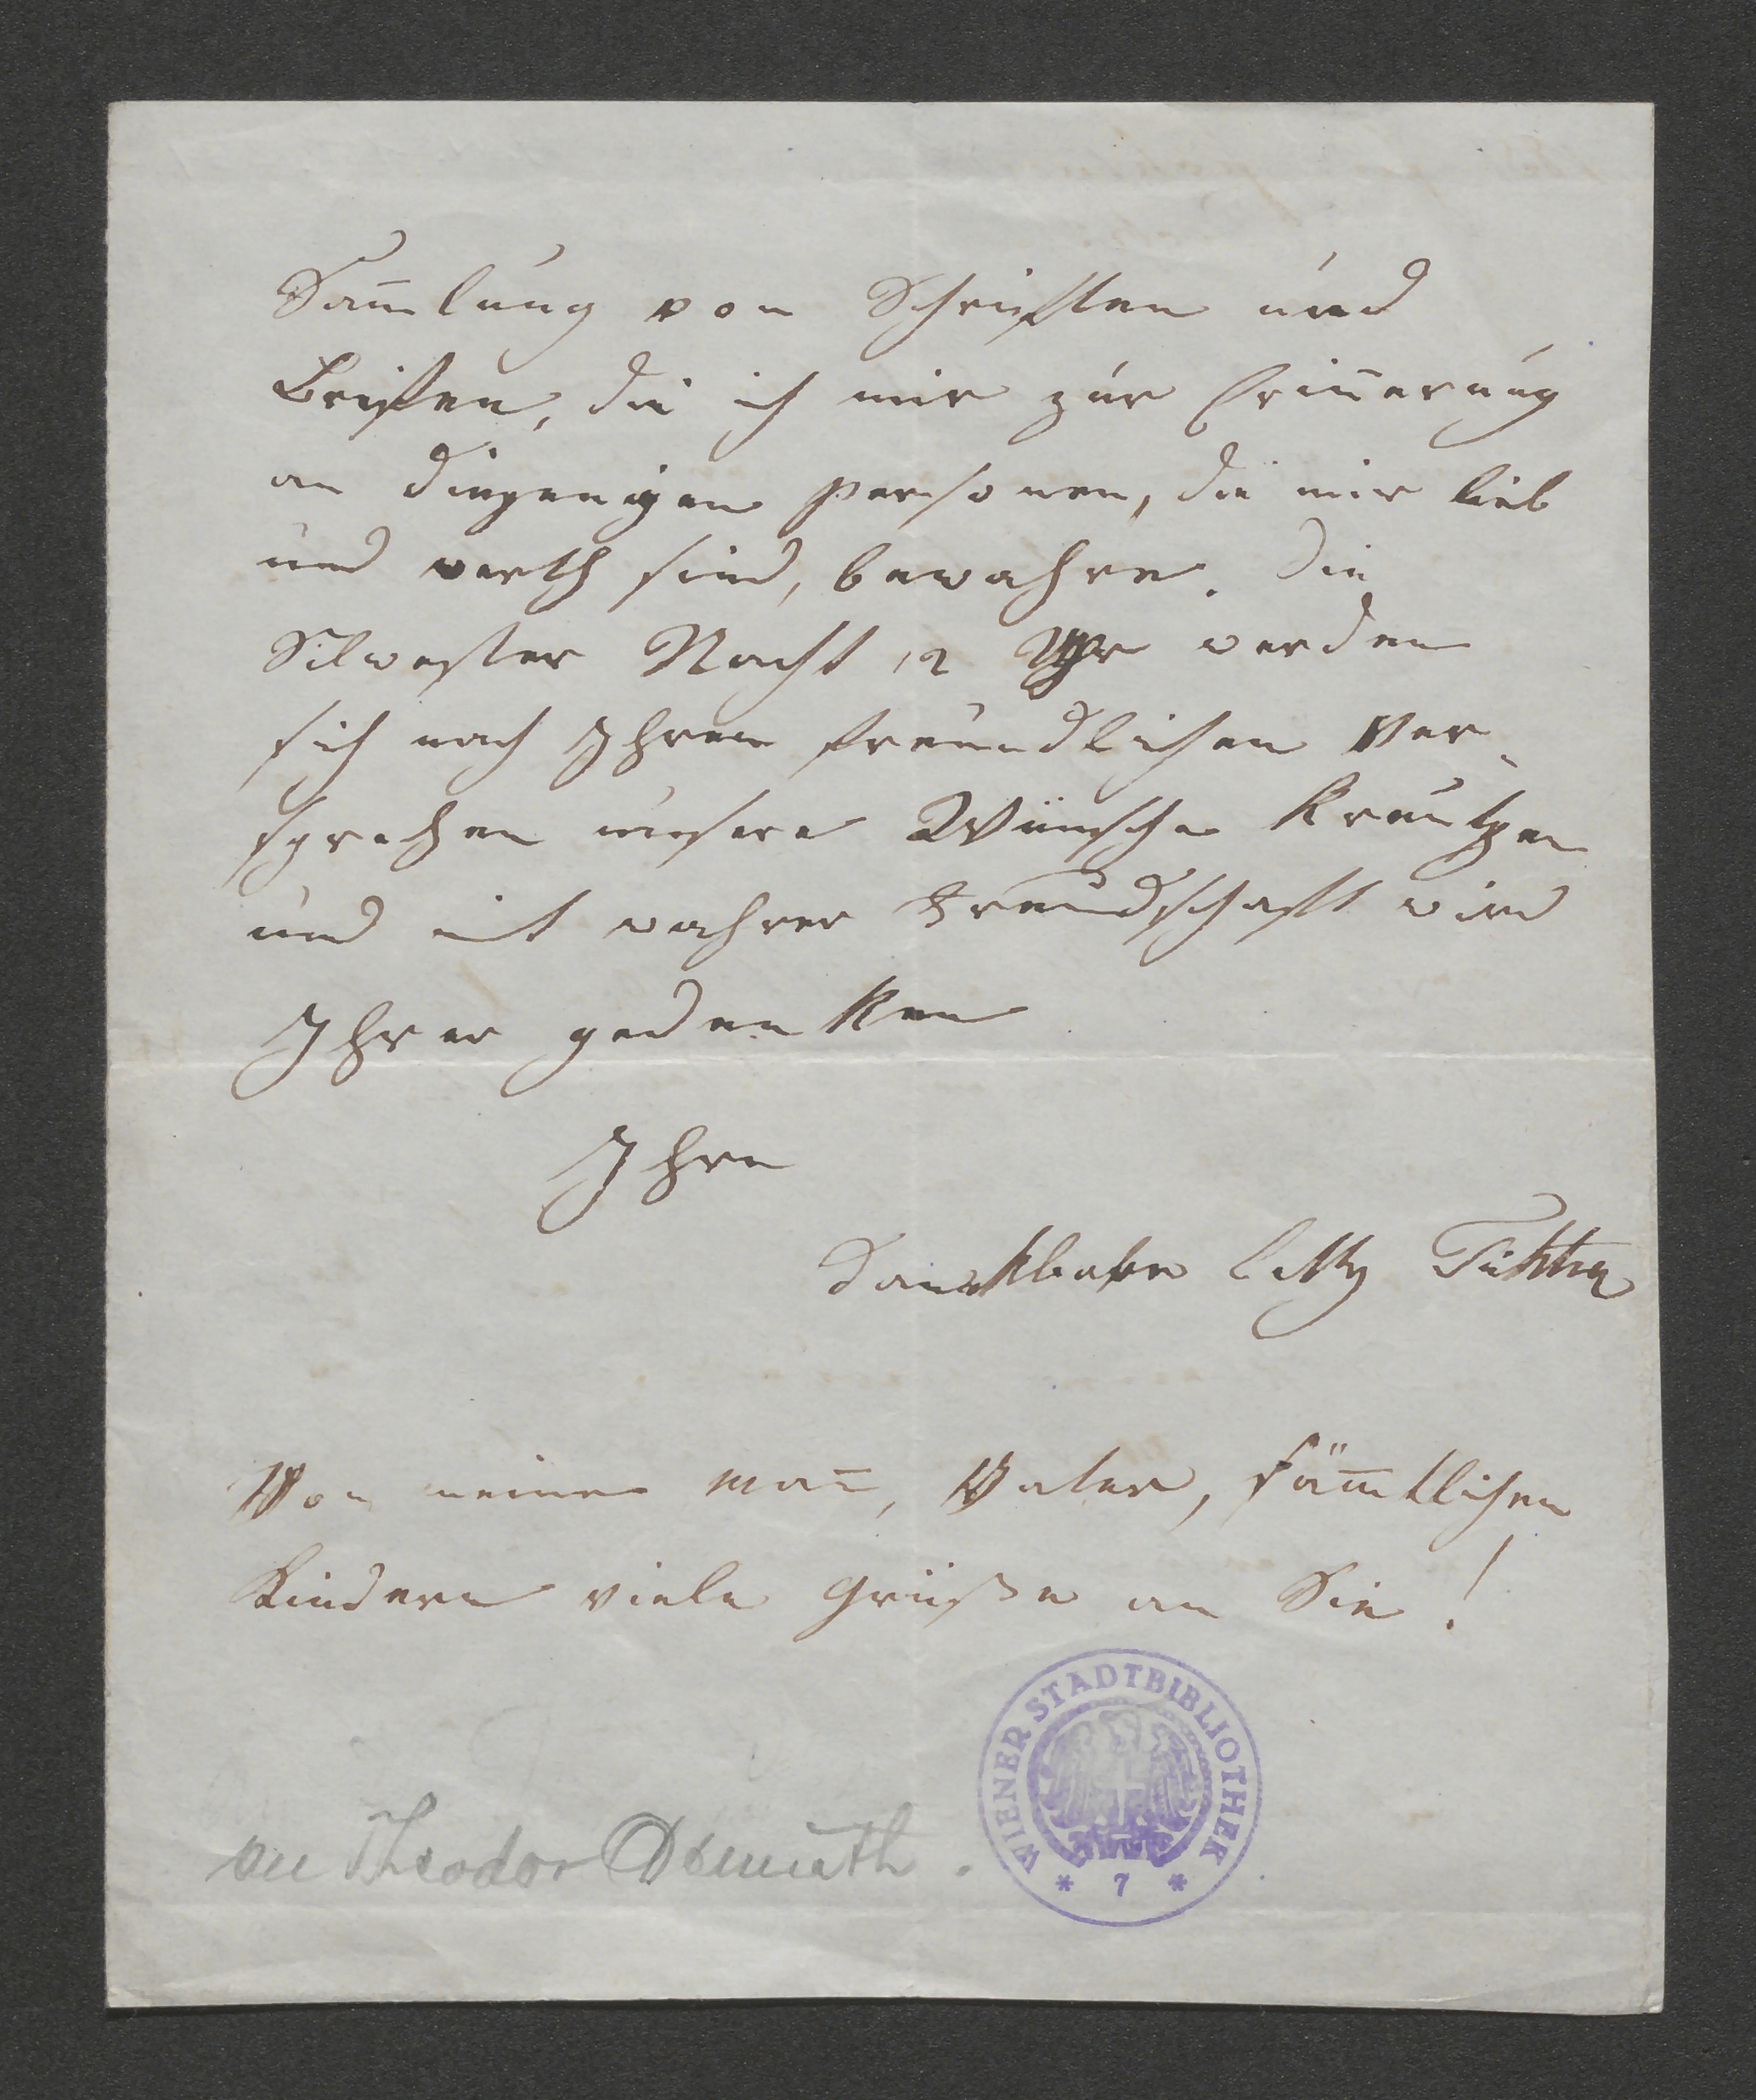 Sam̄lung von Schriften und
Briefen, die ich mir zur Erin̄erung
an diejenigen Personen, die mir lieb
und werth sind, bewahre. Die
Silvester Nacht 12 Uhr werden
sich nach Ihrem freundlichen Ver-
sprechen unsere Wünsche Kreutzen
und mit wahrer Freundschaft wird
Ihrer gedenken
Ihre
dankbare Betty Fichtner
Von meinem Man̄, Vater, säm̄tlichen
Kindern viele Grüße an Sie!
an Theodor Demuth.
WIENER STADTBIBLIOTHEK
* 7 *